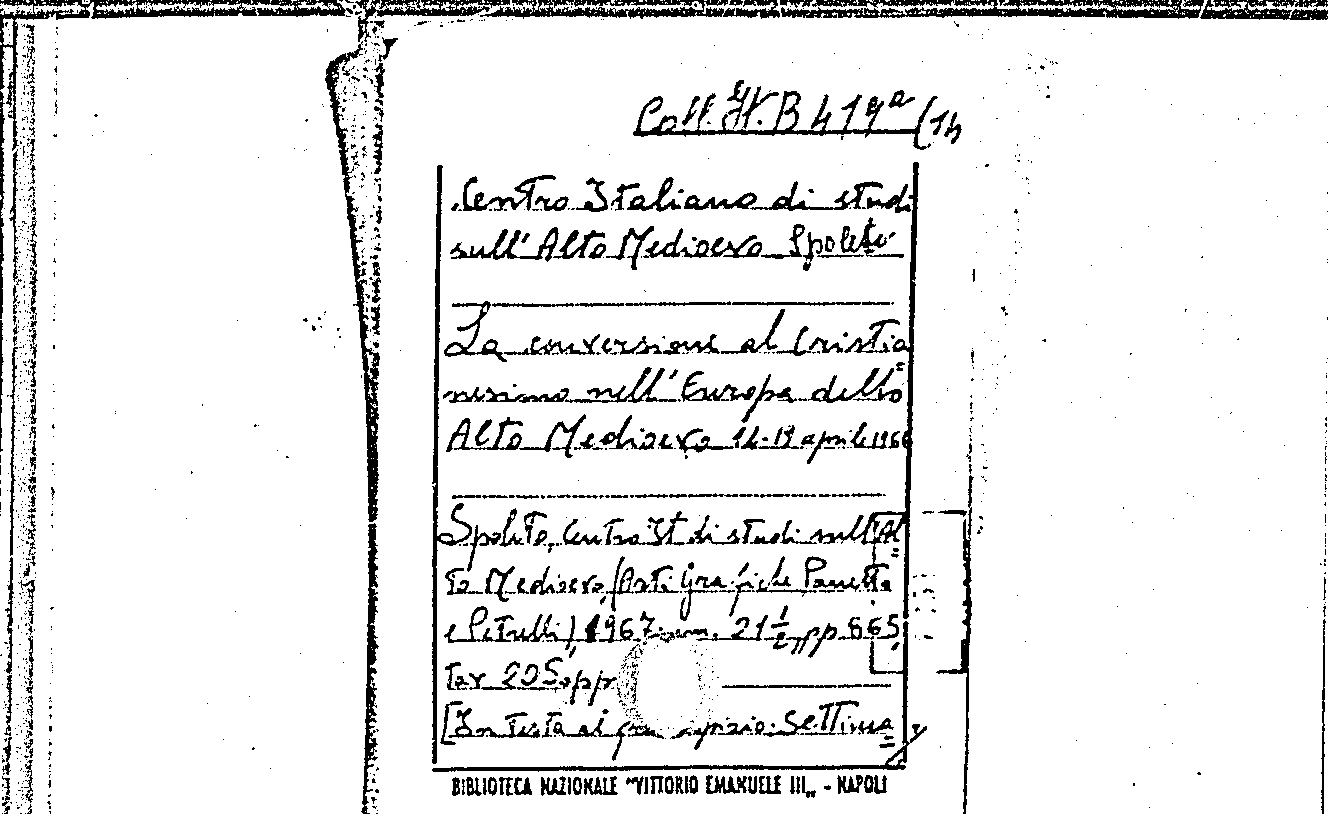 Coll. It. B 419ª (14
Centro Italiano di studi
sull' Alto Medioevo Spoleto
La conversione al Cristia
nesimo nell' Europa dello
Alto Medioevo 14-19 aprile 1966
Spoleto, Centro It di studi sull'Al
to Medioevo, (Arti Grafiche Panetto
e Petrelli), 1967. cm. 21 1/2, pp. 865,
tav 205, pp
[In testa al Settima
BIBLIOTECA NAZIONALE "VITTORIO EMANUELE III„ - NAPOLI